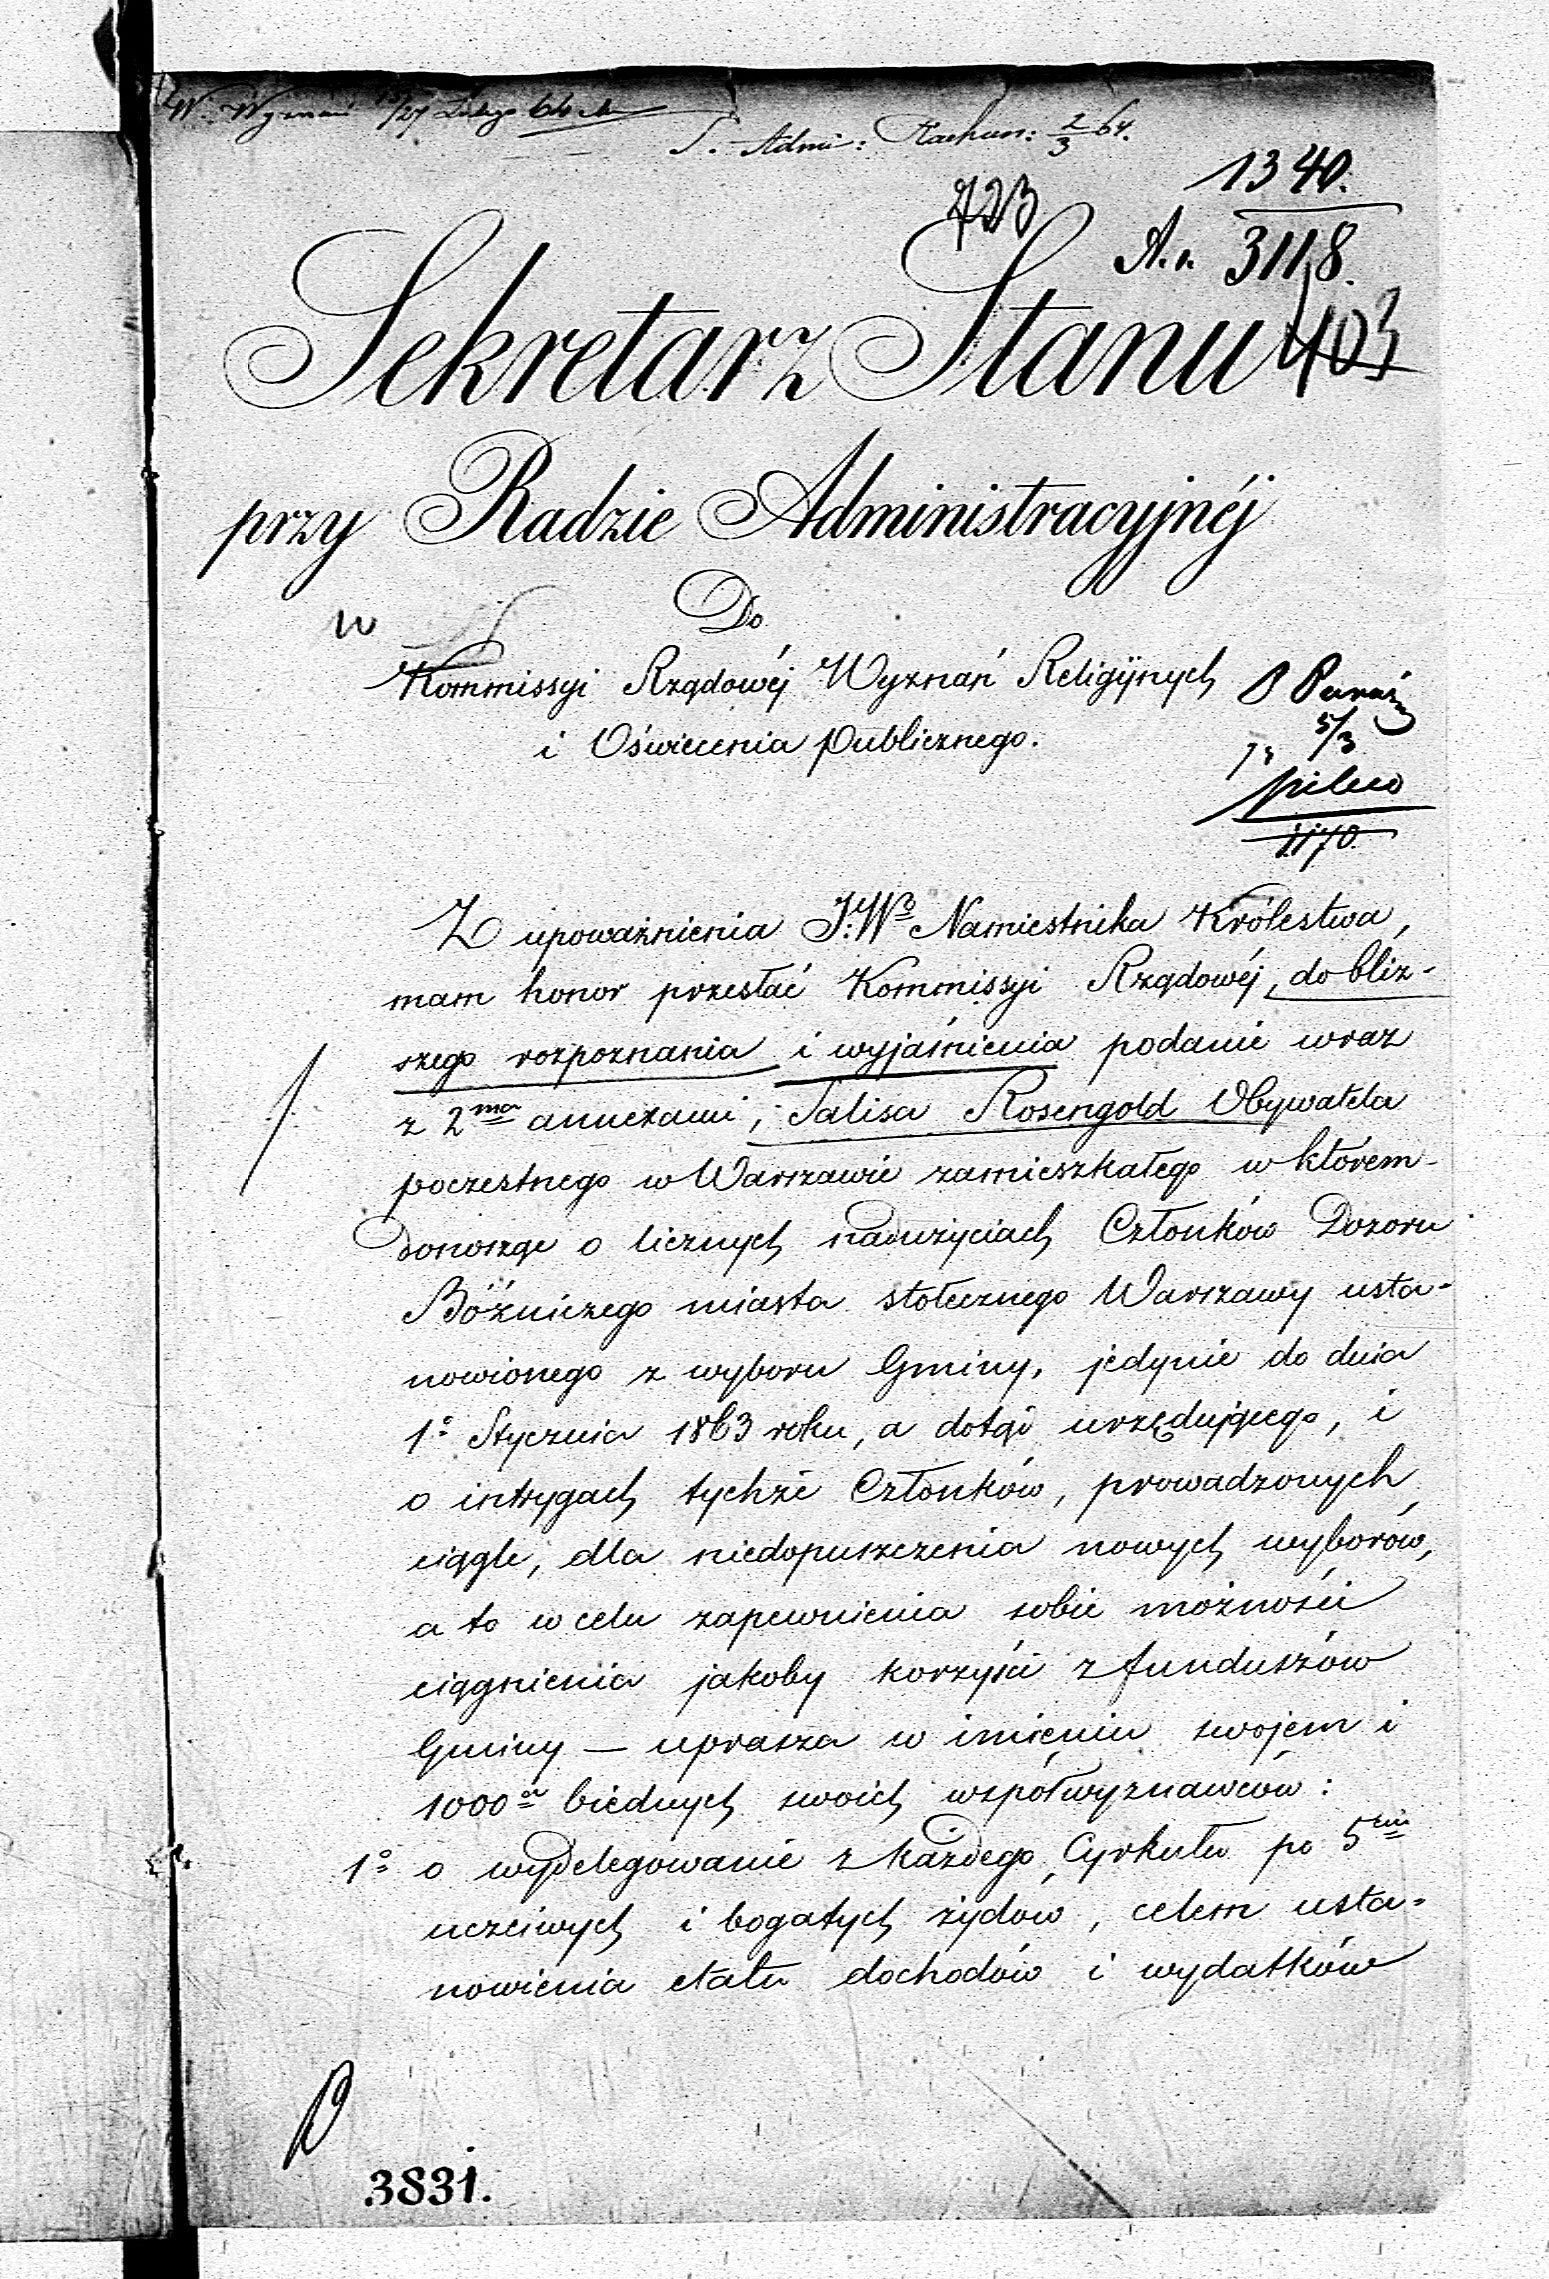 W. Wyznań 15/27 Lutego 64
S. Admi: Rachun: 2/3 64.
1340.
723
A.r. 3118.
Sekretarz Stanu
403
przy Radzie Administracyjnéj
Do
w
Kommissyi Rządowéj Wyznań Religijnych
i Oświecenia Publicznego.
P
5/3
pilno
1170.
Z upoważnienia J:Wo Namiestnika Królestwa,
mam honor przesłać Kommissyi Rządowéj, do bliż-
szego rozpoznania i wyjaśnienia podanie wraz
z 2ma annexami, Salisa Rosengold Obywatela
poczestnego w Warszawie zamieszkałego w którem
donosząc o licznych nadużyciach Członków Dozoru
Bóźniczego miasta stołecznego Warszawy usta-
nowionego z wyboru Gminy, jedynie do dnia
1o Stycznia 1863 roku, a dotąd urzędującego, i
o intrygach tychże Członków, prowadzonych
ciągle, dla niedopuszczenia nowych wyborów,
a to w celu zapewnienia sobie możności
ciągnienia jakoby korzyści z funduszów
Gminy — uprasza w imieniu swojem i
1000a biednych swoich współwyznawców:
1o o wydelegowanie z każdego Cyrkułu po 5ciu
uczciwych i bogatych żydów, celem usta-
nowienia etatu dochodów i wydatków
3831.